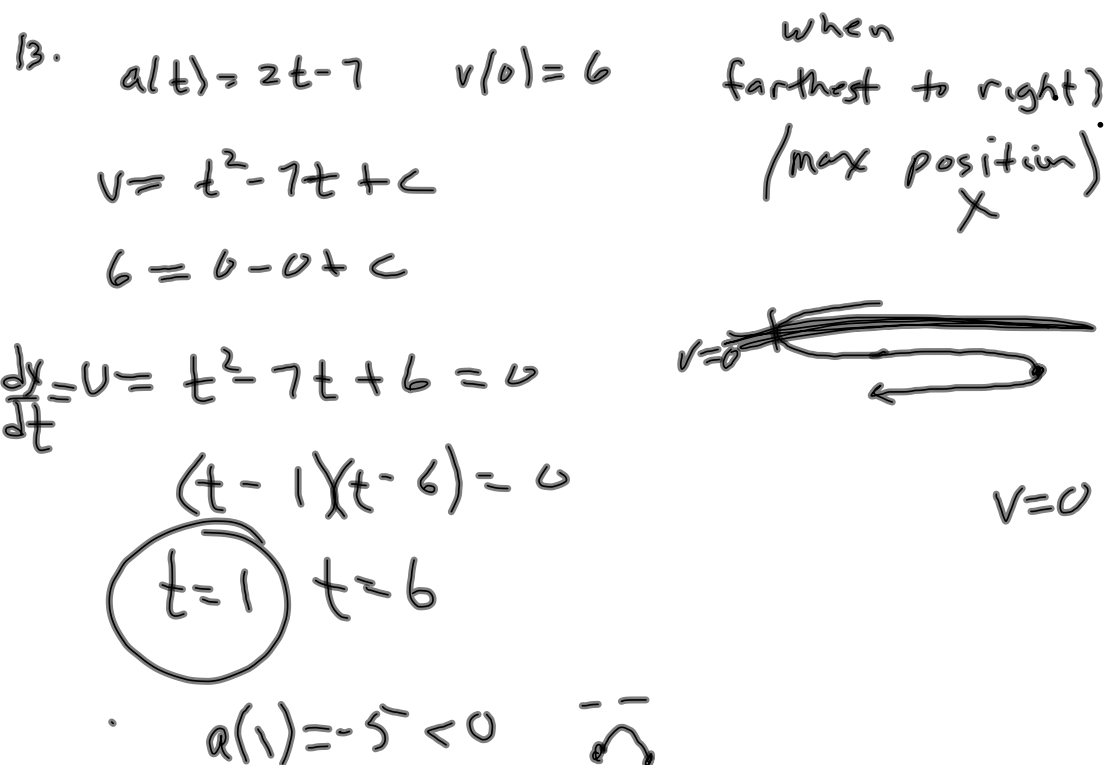 13.
a(t) = 2t - 7    v(0) = 6
when
farthest to right?
(max position)
x
v = t² - 7t + c
6 = 0 - 0 + c
v=0
dx/dt = v = t² - 7t + 6 = 0
(t - 1)(t - 6) = 0
v=0
t = 1    t = 6
a(1) = -5 < 0    - -